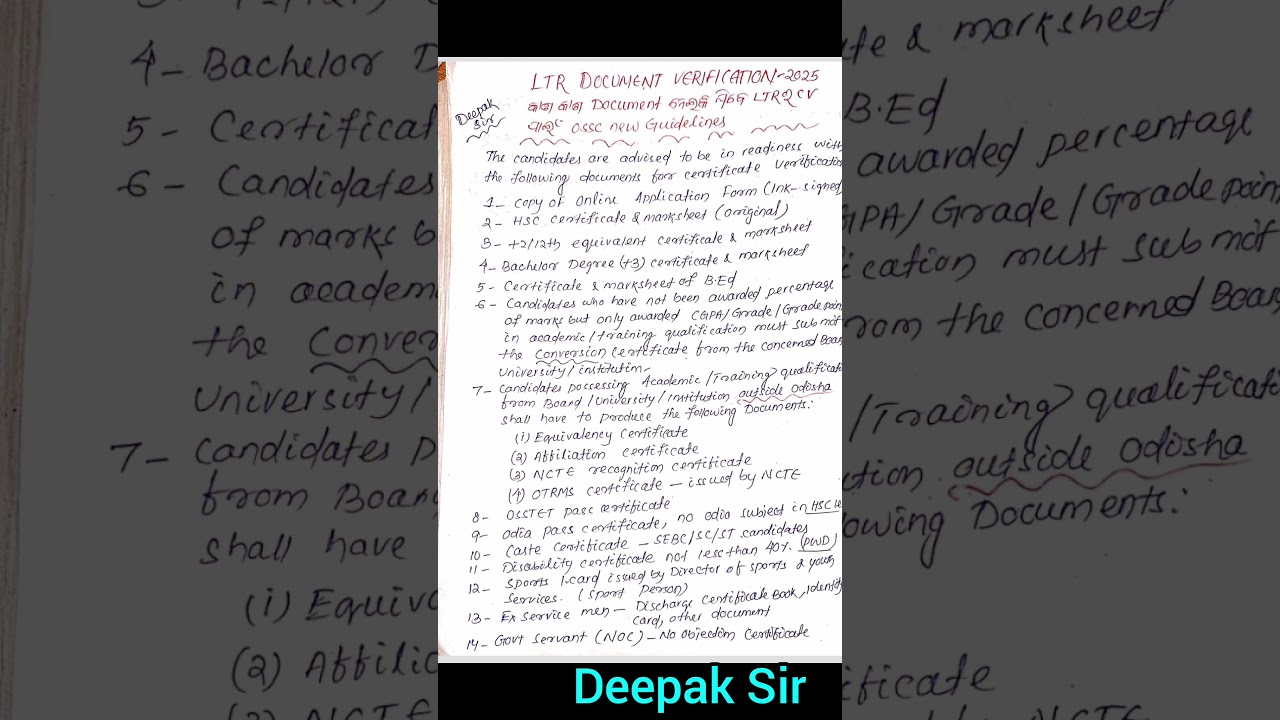 LTR DOCUMENT VERIFICATION-2025
Deepak Sir
କାଣ କାଣ Document ନେଇକି ଯିବେ LTRର CV
ପାଇଁ OSSC new Guidelines
The candidates are advised to be in readiness with
the following documents for certificate verification
1- Copy of Online Application Form (Ink-signed)
2- HSC certificate & marksheet (original)
3- +2/12th equivalent certificate & marksheet
4- Bachelor Degree (+3) certificate & marksheet
5- Certificate & marksheet of B.Ed
6- Candidates who have not been awarded percentage
of marks but only awarded CGPA/Grade/Grade poin
in academic/training qualification must submit
the Conversion certificate from the concerned Boar
University/institution.
7- Candidates possessing Academic/Training qualificati
from Board/University/Institution outside Odisha
shall have to produce the following Documents:
(1) Equivalency Certificate
(2) Affiliation certificate
(3) NCTE recognition certificate
(4) OTRMS certificate - issued by NCTE
8- OSSTET pass certificate
9- Odia pass certificate, no odia subject in HSC le
10- Caste Certificate - SEBC/SC/ST candidates
11- Disability certificate not less than 40%. (PWD)
12- Sports I-card issued by Director of sports & youth
Services. (Sport Person)
13- Ex service men - Discharge Certificate Book, Identity
card, other document
14- Govt Servant (NOC) - No Objection Certificate
Deepak Sir